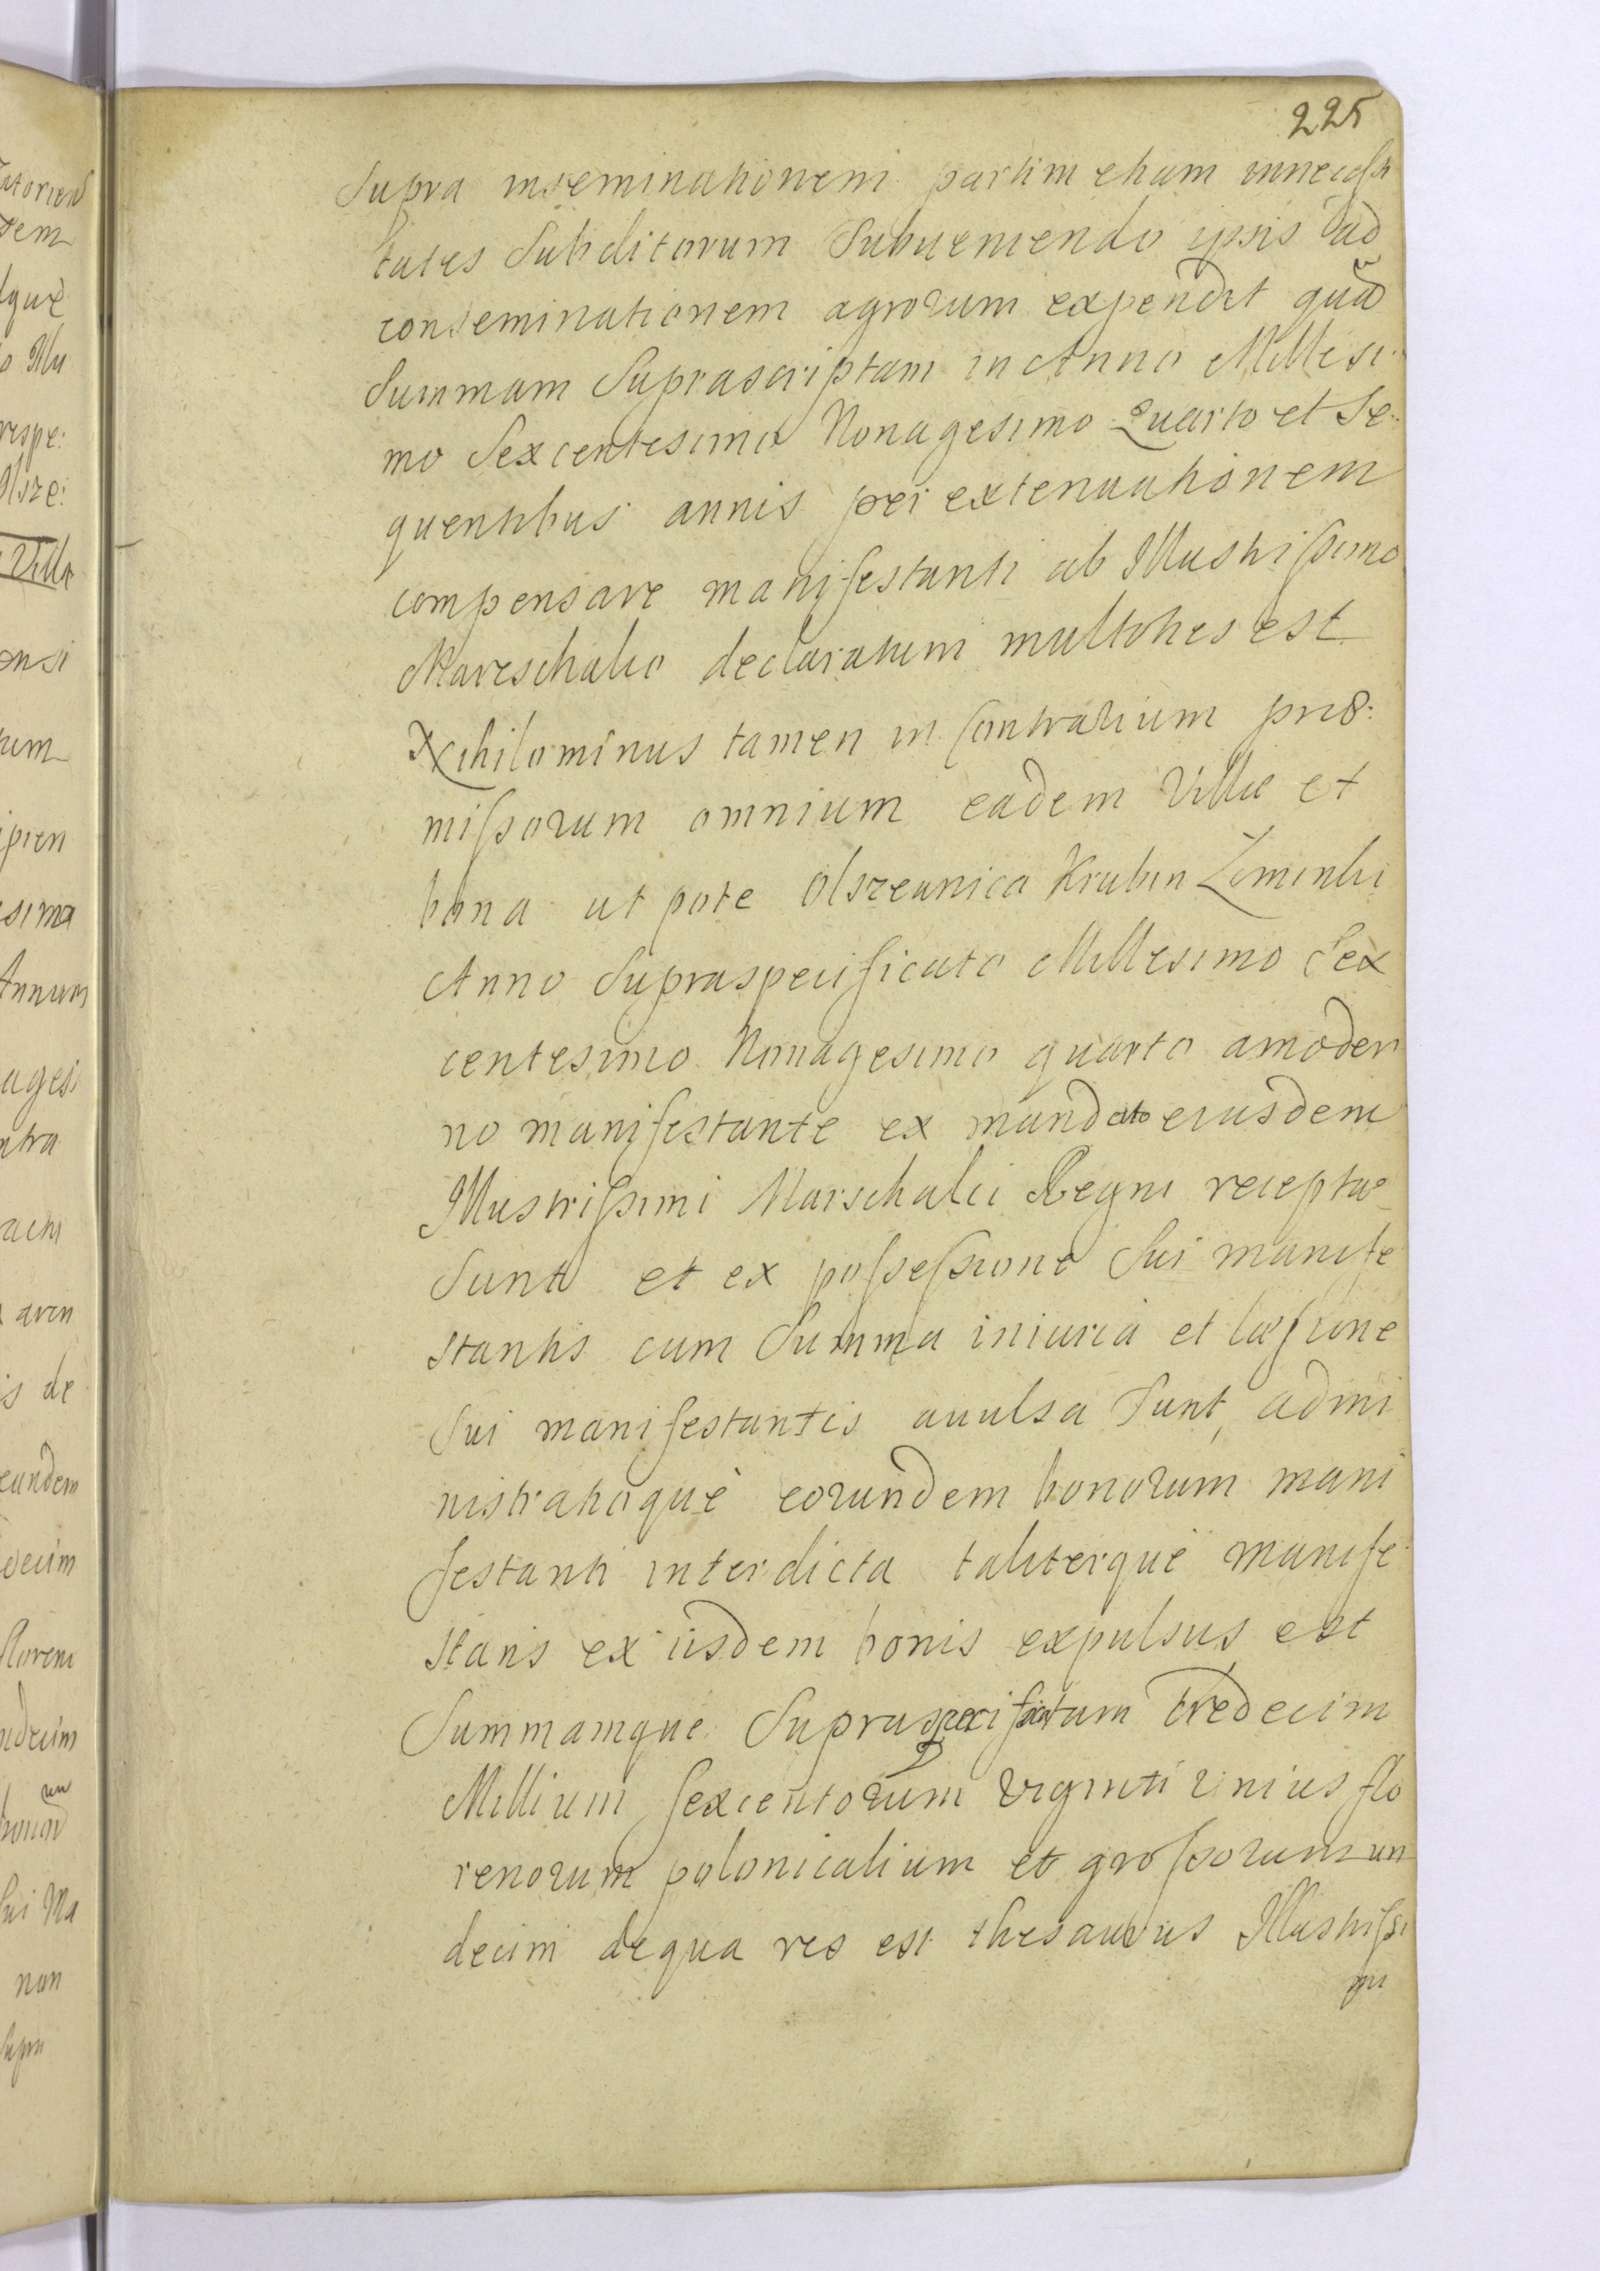 225
Supra inseminationem partim etiam innecessi
tates Subditorum Subueniendo ipsis ad
conseminationem agrorum expendit quam
Summam Suprascriptam in Anno Millesi
mo Sexcentesimo Nonagesimo Quarto et Se:
quentibus annis per extenuationem
compensare manifestanti ab Illustrissimo
Mareschalco declaratum multoties est
Nihilominus tamen in Contrarium præ:
missorum omnium eadem Villæ et
bona ut pote Olszeanica Krubin
Anno Supraspecificato Millesimo Sex
centesimo Nonagesimo quarto amoder
no manifestante ex mandato eiusdem
Illustrissimi Marschalci Regni receptæ
Sunt et ex possessione Sui manife
stantis cum Summa iniuria et læsione
Sui manifestantis auulsa Sunt, admi
nistratioquè eorundem bonorum mani
festanti interdicta taliterquè manife
stans ex iisdem bonis expulsus est
Summamque Supraspecificatam Tredecim
Millium sexcentorum Viginti Unius flo
renorum polonicalium et grossorum un
decim de qua res est thesaurus Illustrissi
mi
atorien
dem
lquè
o Illu
respe:
Olsze:
Villa
onsi
ipien
esima
Annum
agesi
ntra
aren
is de
eundem
decim
floreni
ndecim
Sui Ma
non
Supra